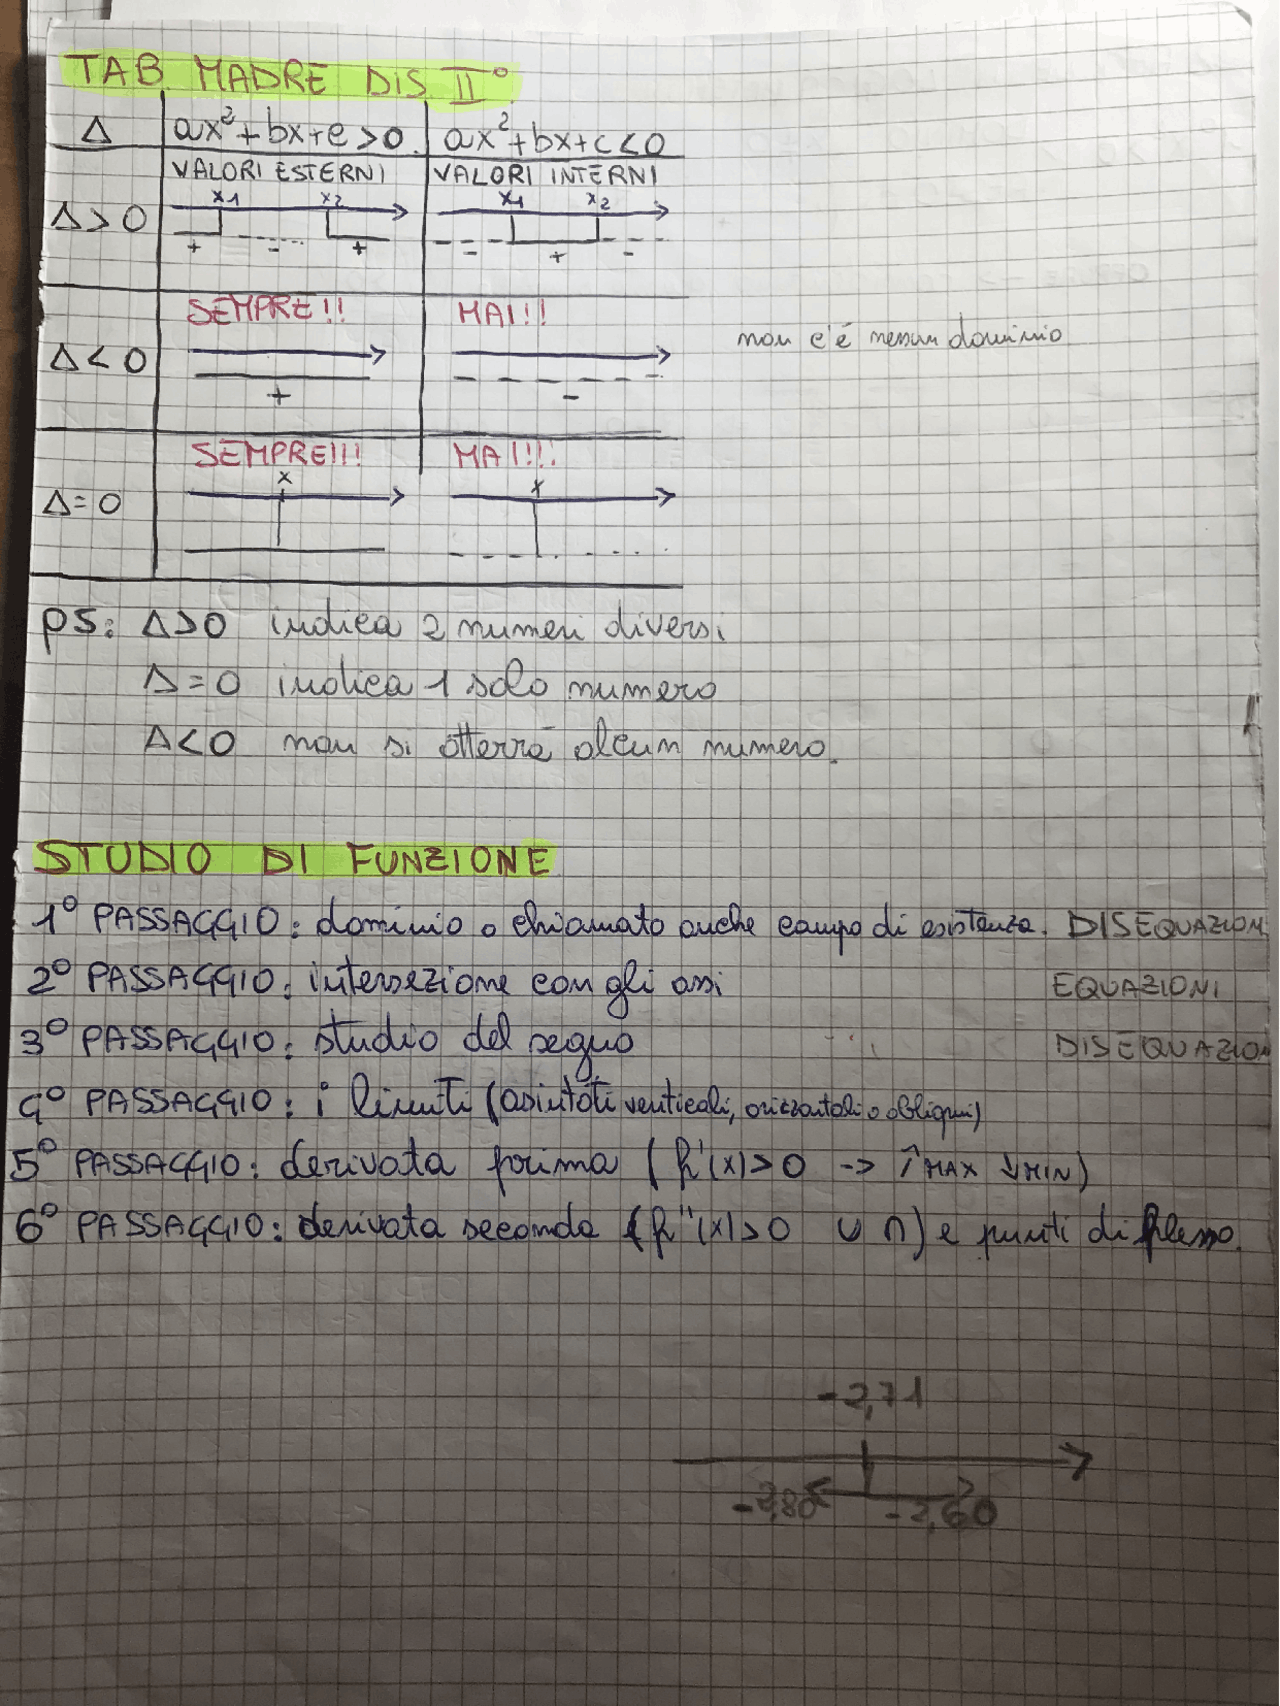 TAB. MADRE DIS. II°
Δ ax²+bx+c>0. ax²+bx+c<0
VALORI ESTERNI VALORI INTERNI
x1 x2 x1 x2
Δ>0
+ - + - + -
SEMPRE!! MAI!!
non c'é nessun dominio
Δ<0
+ -
SEMPRE!!! MAI!!!
x x
Δ=0
ps: Δ>0 indica 2 numeri diversi
Δ=0 indica 1 solo numero
Δ<0 non si otterrà alcun numero.
STUDIO DI FUNZIONE
1° PASSAGGIO: dominio o chiamato anche campo di esistenza. DISEQUAZIONI
2° PASSAGGIO: intersezione con gli assi EQUAZIONI
3° PASSAGGIO: studio del segno DISEQUAZION
4° PASSAGGIO: i limiti (asintoti verticali, orizzontali o obliqui)
5° PASSAGGIO: derivata prima (f'(x)>0 -> ↑MAX ↓MIN)
6° PASSAGGIO: derivata seconda (f''(x)>0 ∪ ∩) e punti di flesso.
-2,71
-2,80 -2,60